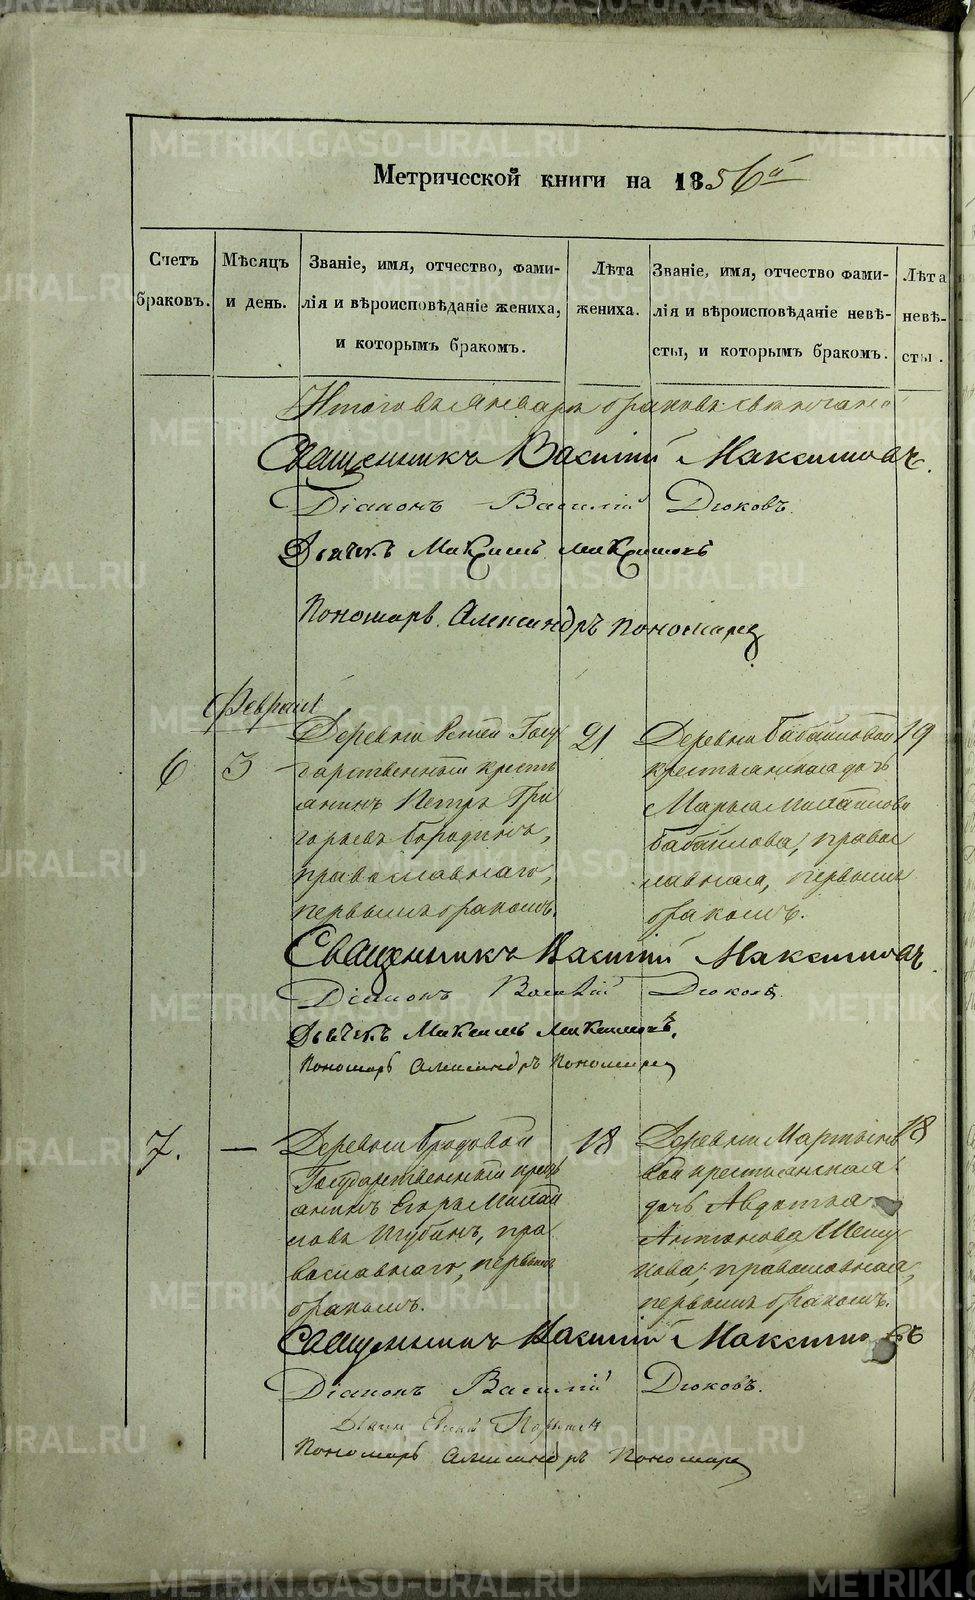 Метрической книги на 1856й
Счетъ браковъ.
Мѣсяцъ и день.
Званіе, имя, отчество, фами-
лія и вѣроисповѣданіе жениха,
и которымъ бракомъ.
Лѣта жениха.
Званіе, имя, отчество фами-
лія и вѣроисповѣданіе невѣ-
сты, и которымъ бракомъ.
Лѣта невѣ-
сты.
Итого въ Январѣ браковъ
Священникъ Василій Максимовъ.
Діаконъ Василій Дюковъ.
Дьячекъ Максимъ
Пономарь Александръ Пономарев
Февраль
6
3
Деревни Госу
дарственный кресть
янинъ Петръ Гри
горьевъ Бородинъ,
православнаго,
первымъ бракомъ.
21
Деревни Бабайловой
крестьянская дочь
Марья Михайлова
Бабайлова, право
славная, первымъ
бракомъ.
19
Священникъ Василій Максимовъ
Діаконъ Василій Дюковъ.
Дьячекъ Максимъ
Пономарь Александръ Пономарев
7.
—
Деревни Бродовой
Государственный крест
янинъ Егоръ Михай
ловъ Шубинъ, пра
вославнаго, первымъ
бракомъ.
18
Деревни Мартын
вой крестьянская
дочь Авдотья
Антонова
православная,
первымъ бракомъ.
18
Священникъ Василій Максимовъ
Діаконъ Василій Дюковъ.
Пономарь Александръ Пономарев
METRIKI.GASO-URAL.RU